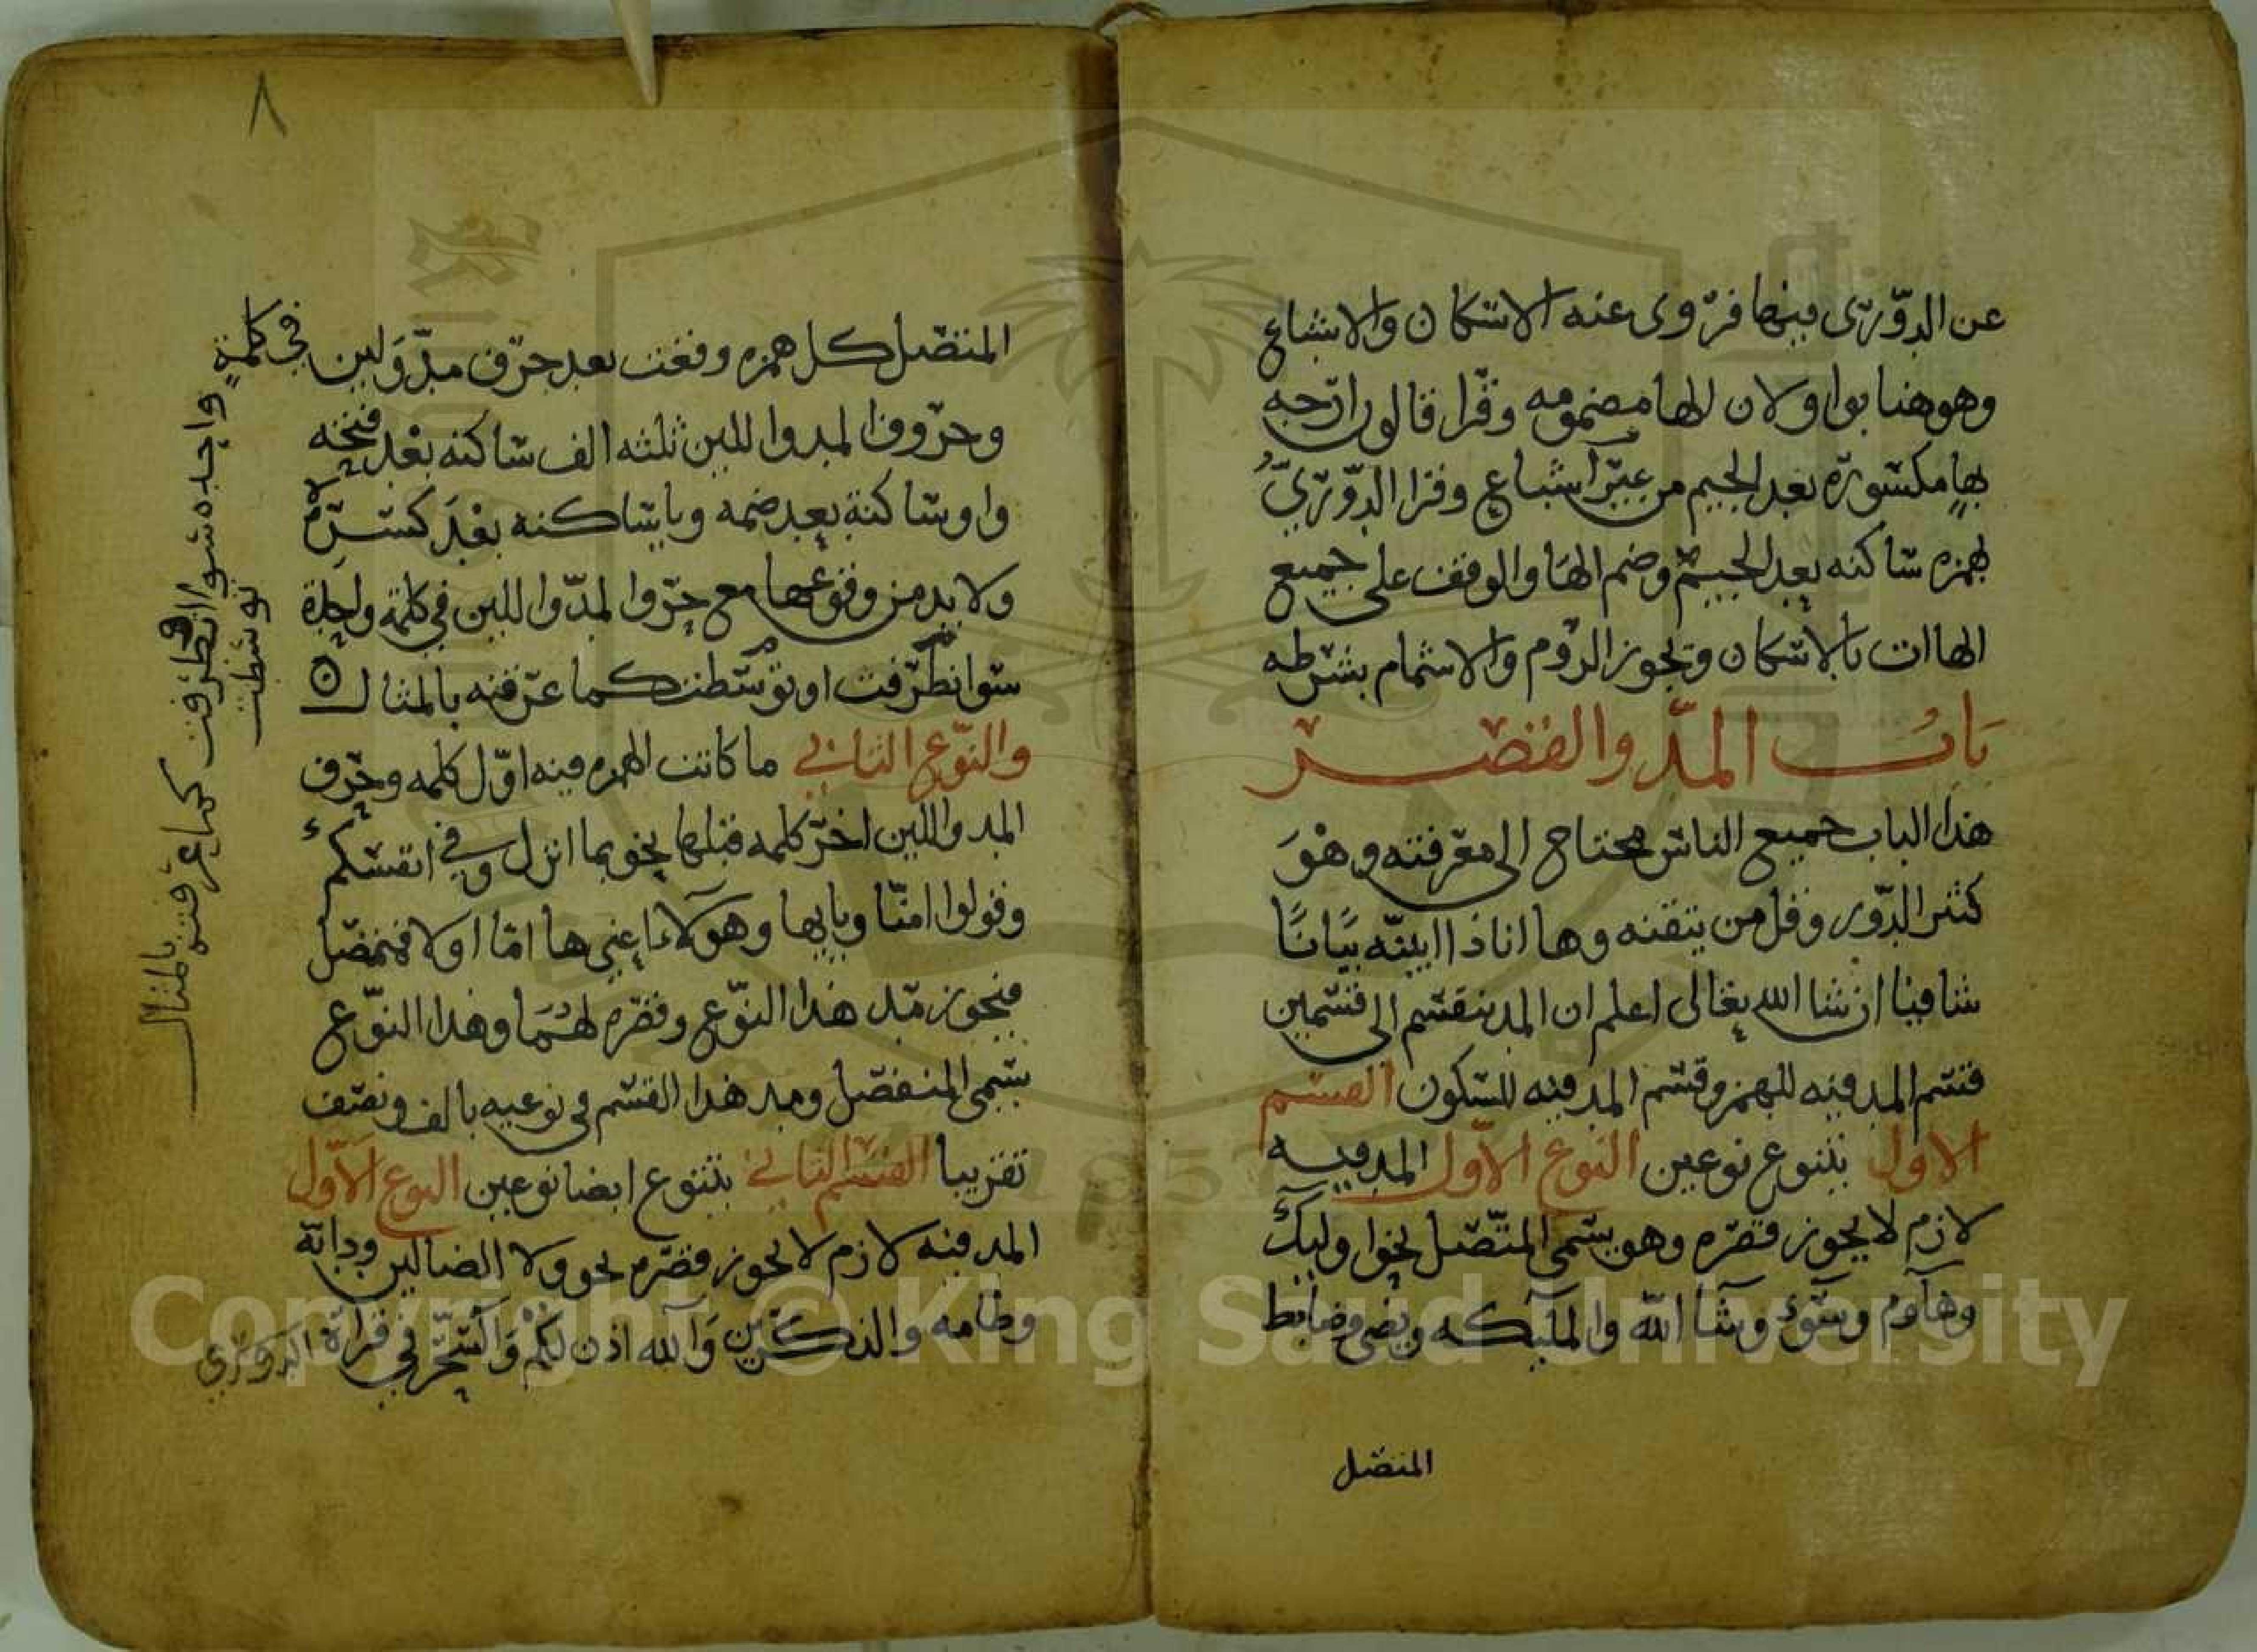 عن الدوري فيها فروى عنه الاسكان والاشباع
وهو هنا بواو لان الها مضمومه وقرا قالون ارجه
بها مكسورة بعد الجيم من غير اشباع وقرا الدوري
بهمزه ساكنه بعد الجيم وضم الها والوقف على جميع
الهاات بالاسكان ويجوز الروم والاشمام بشرطه
باب المد والقصر
هذا الباب جميع الناس محتاج الى معرفته وهو
كثير الدور وقل من يتقنه وها انا ذا ابينه بيانا
شافيا ان شا الله تعالى اعلم ان المد ينقسم الى قسمين
قسم المد فيه للهمز وقسم المد فيه للسكون القسم
الاول يتنوع نوعين النوع الاول المد فيه
لازم لا يجوز قصره وهو يسمى المتصل نحو اوليك
وهاوم وسوء وشا الله والمليكه ويضي وضابط
المتصل
٨
المتصل كل همزه وقعت بعد حرف مد ولين في كلمة
وحروف المد واللين ثلثه الف ساكنه بعد فتحه
واو ساكنة بعد ضمه ويا ساكنه بعد كسرة
ولا بد من وقوعها مع حروا لمد واللين في كلمة واحدة
سوا تطرفت او توسطت كما عرفته بالمثال
والنوع الثاني ما كانت الهمزه فيه اول كلمه وحرف
المد واللين اخر كلمه قبلها نحو بما انزل وفي انفسكم
وقولوا امنا وبابها وهولاء اعني ها اما اولا فمتصل
فيجوز مد هذا النوع وقصره لهما وهذا النوع
يسمى المنفصل ومد هذا القسم في نوعيه بالف ونصف
تقريبا القسم الثاني يتنوع ايضا نوعين النوع الاول
المد فيه لازم لا يجوز قصره نحو ولا الضالين ودابة
وطامه والذكرين والله اذن لكم والسحر في قراة الدوري
واحده سوا تطرفت كما عرفته بالمثال
توسطت